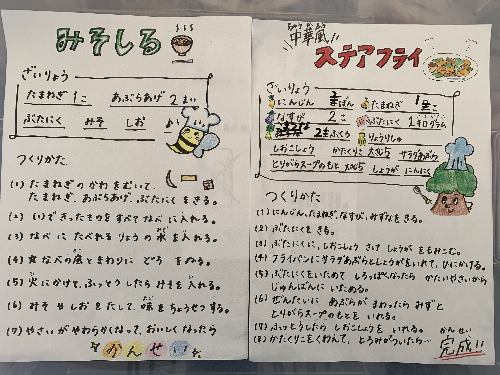 みそしる
ざいりょう
たまねぎ 1こ あぶらあげ 2まい
ぶたにく みそ しお
つくりかた
(1) たまねぎの かわ をむいて、
たまねぎ、あぶらあげ、ぶたにく をきる。
(2) (1)で きったものを すべて なべ に入れる。
(3) なべ に たべれる りょう の 水 を入れる。
(4) なべの 底 と まわりに どろ をぬる。
(5) 火 にかけて、ふっとう したら みそ を入れる。
(6) みそ や しお を たして、味 をちょうせつ する。
(7) やさいが やわらかくなって、おいしく なったら
かんせい
ちゅうかふう
中華風!!
ステアフライ
ざいりょう
にんじん ぼん たまねぎ こ
なすび 2こ ぶたにく 1キログラム
2ふくろ りょうりしゅ
しおこしょう かたくりこ 大さじ5 サラダあぶら
とりがらスープのもと 大さじ5 しょうが にんにく
つくりかた
(1) にんじん,たまねぎ,なすび,みずなをきる。
(2) ぶたにくを きる。
(3) ぶたにくに、しおこしょう さけ しょうが をもみこむ。
(4) フライパンにサラダあぶらとしょうがをいれて、ひにかける。
(5) ぶたにくをいためて しろっぽくなったら かたいやさいから
じゅんばんに いためる。
(6) ぜんたいに あぶらが まわったら みずと
とりがらスープのもとを いれる。
(7) ふっとうしたら しおこしょうを いれる。
(8) かたくりこを くわえて、とろみがついたら…
かんせい
完成!!